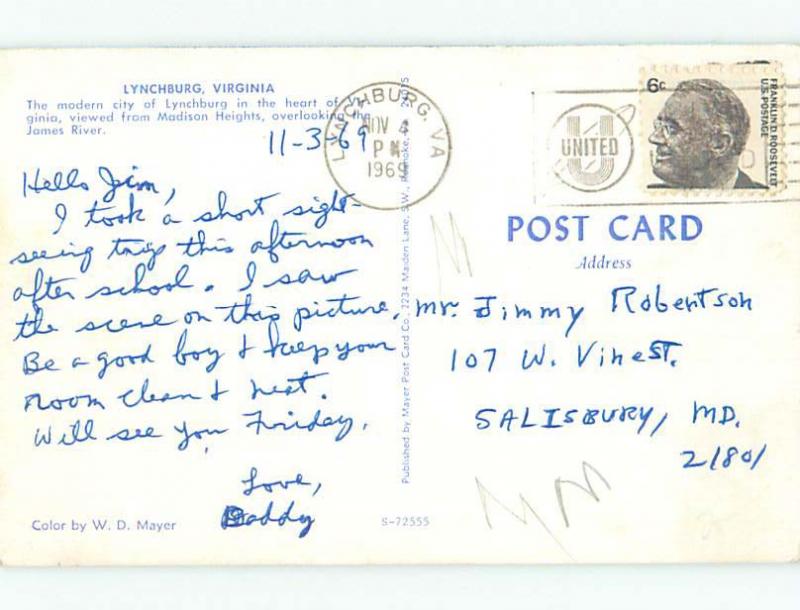 LYNCHBURG, VIRGINIA
The modern city of Lynchburg in the heart of Vir-
ginia, viewed from Madison Heights, overlooking the
James River.
11-3-69
Hello Jim,
I took a short sight-
seeing trip this afternoon
after school. I saw
the scene on this picture.
Be a good boy & keep your
room clean & neat.
Will see you Friday.
Love,
Daddy
Color by W. D. Mayer
S-72555
Published by Mayer Post Card Co., 2234 Maiden Lane, S.W., Roanoke,
LYNCHBURG, VA
NOV
PM
1969
UNITED
6c
FRANKLIN D. ROOSEVELT
U.S. POSTAGE
POST CARD
Address
Mr. Jimmy Robertson
107 W. Vine St.
SALISBURY, MD.
21801